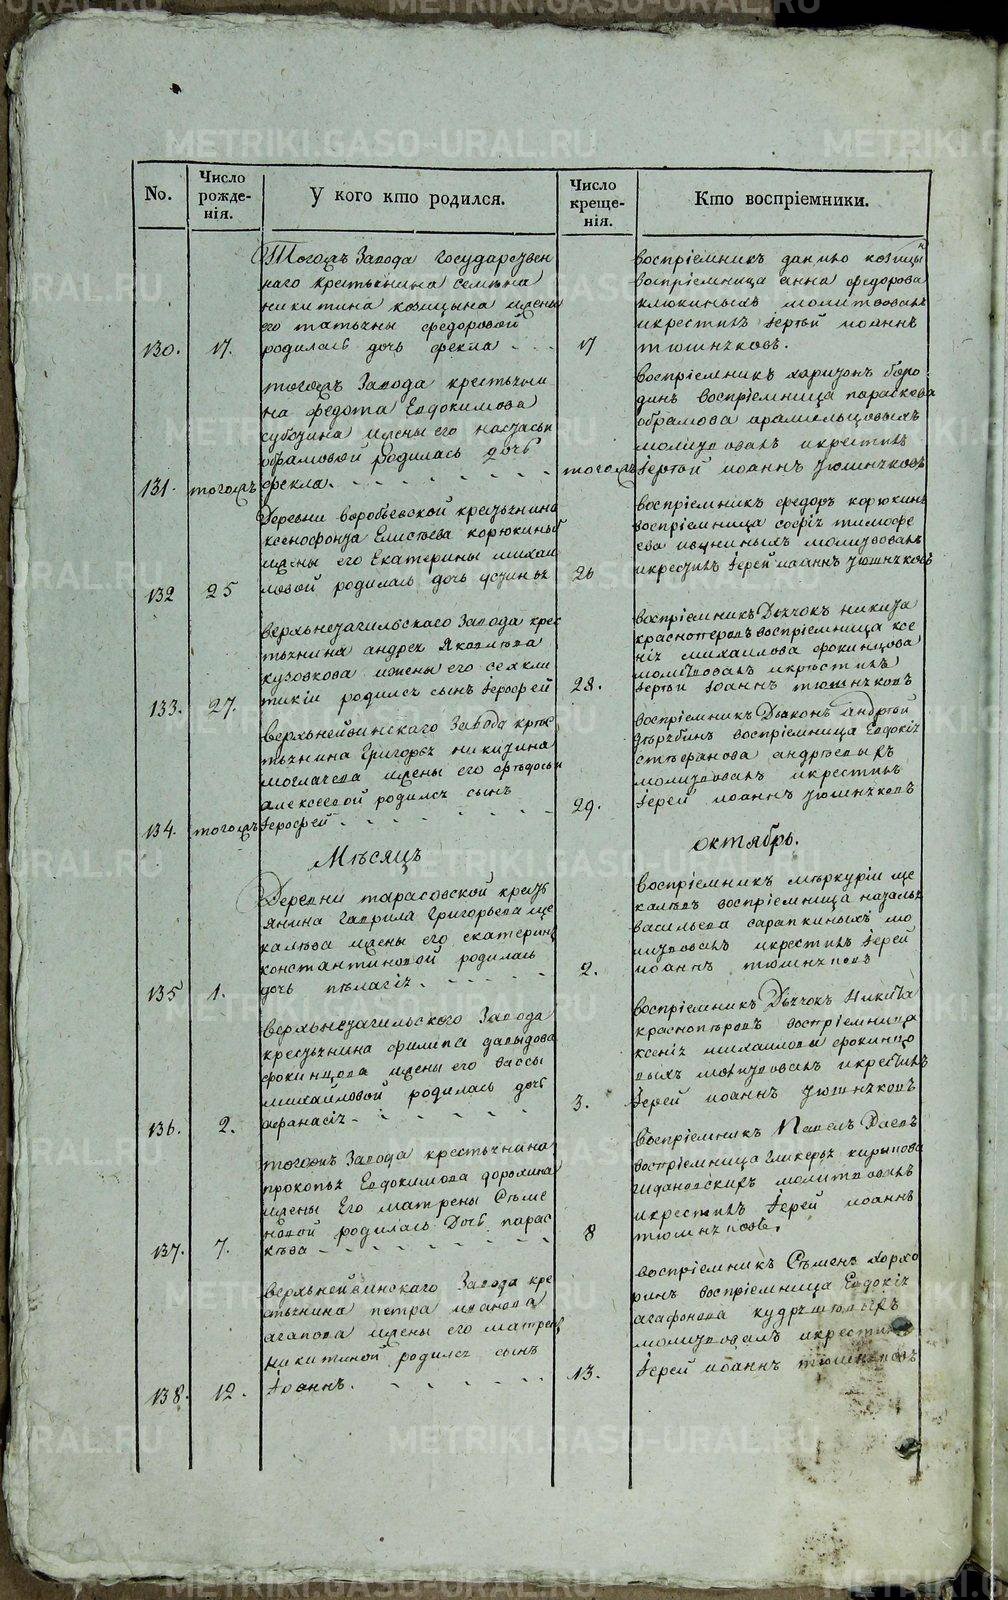 No.
Число рожде-нія.
У кого кто родился.
Число креще-нія.
Кто воспріемники.
Тогожъ Завода государствен
наго крестьянина семена
никитина козицына жены
его татьяны федоровой
130. 17. родилась дочь фекла
воспріемникъ данило козицы
воспріемница анна федорова
клюкиныхъ молитвовалъ
икрестилъ Іерей иоаннъ
17 тюшняковъ.
тогожъ Завода крестьяни
на федота Евдокимова
жены его
абрамовой родилась дочь
131. тогожъ фекла
воспріемникъ харитонъ боро
динъ воспріемница параскева
абрамова
молитвовалъ икрестилъ
тогожъ Іерей иоаннъ тюшняковъ
Деревни воробьевской крестьянина
ксенофонта Елисеева корюкины
жены его Екатерины михаи
132 25 ловой родилась дочь устинья
воспріемникъ федоръ корюкинъ
воспріемница софія тимофе
ева молитвовалъ
26 икрестилъ Іерей иоаннъ тюшняковъ
верхьнетагильскаго Завода крес
тьянина андрея Яковлева
кузовкова жены его
133. 27. родился сынъ Іерофей
воспріемникъ Дьячокъ никита
красноперовъ воспріемница ксе
нія михаилова фокинцова
молитвовалъ икрестилъ
28. Іерей Іоаннъ тюшняковъ
верхьнейвинскаго Завода крес
тьянина Григорья никитина
жены его федосьи
алексеевой родился сынъ
134. тогожъ Іерофей
воспріемникъ Дьяконъ андрей
воспріемница Евдокія
стефанова андреевыхъ
молитвовалъ икрестилъ
29. Іерей иоаннъ тюшняковъ
Мѣсяцъ октябрь.
Деревни тарасовской кресть
янина Гаврила Григорьева ще
калева жены его екатерины
константиновой родилась
135 1. дочь пелагія
воспріемникъ меркурій ще
калевъ воспріемница наталья
васильева сарапкиныхъ мо
литвовалъ икрестилъ Іерей
2. иоаннъ тюшняковъ
верхьнетагильскаго Завода
крестьянина филипа давыдова
фокинцова жены его вассы
михайловой родилась дочь
136. 2. афанасія
воспріемникъ Дьячокъ Никита
красноперовъ воспріемница
ксенія михаилова фокинцо
выхъ молитвовалъ икрестилъ
3. Іерей иоаннъ тюшняковъ
тогожъ Завода крестьянина
прокопья Евдокимова дорохина
жены Его матрены Семе
новой родилась Дочь парас
137. 7. кева
воспріемникъ Павелъ
воспріемница гликерья кирьянова
молитвовалъ
икрестилъ Іерей иоаннъ
8 тюшняковъ.
верхьнейвинскаго Завода кре
стьянина петра иванова
агапова жены его матрены
никитиной родился сынъ
138. 12. Іоаннъ.
воспріемникъ Семенъ хохо
ринъ воспріемница Евдокія
агафонова
молитвовалъ икрестилъ
13. Іерей иоаннъ тюшняковъ
METRIKI.GASO-URAL.RU